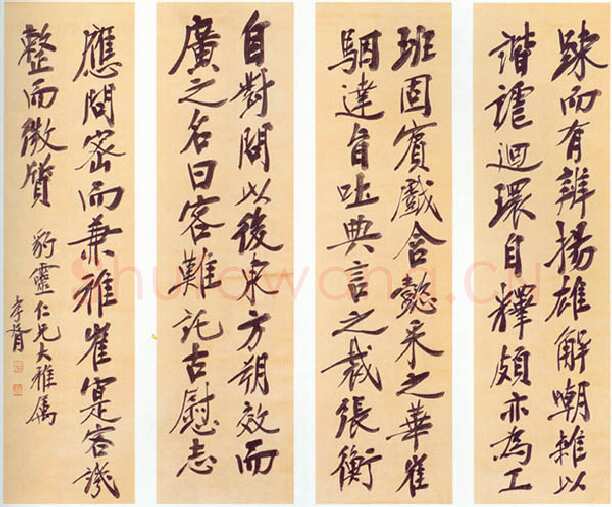 踈而有辨揚雄解嘲雜以
諧謔迴環自釋頗亦為工
班固賓戲含懿采之華崔
駰達旨吐典言之裁張衡
自對問以後東方朔效而
廣之名曰客難託古慰志
應問密而兼雅崔寔客譏
整而微質
豹靈仁兄大雅属
孝胥